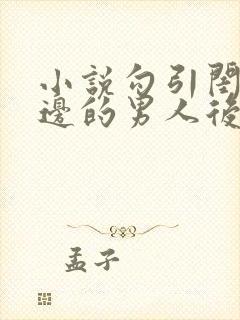 小說勾引閨
邊的男人後
孟子